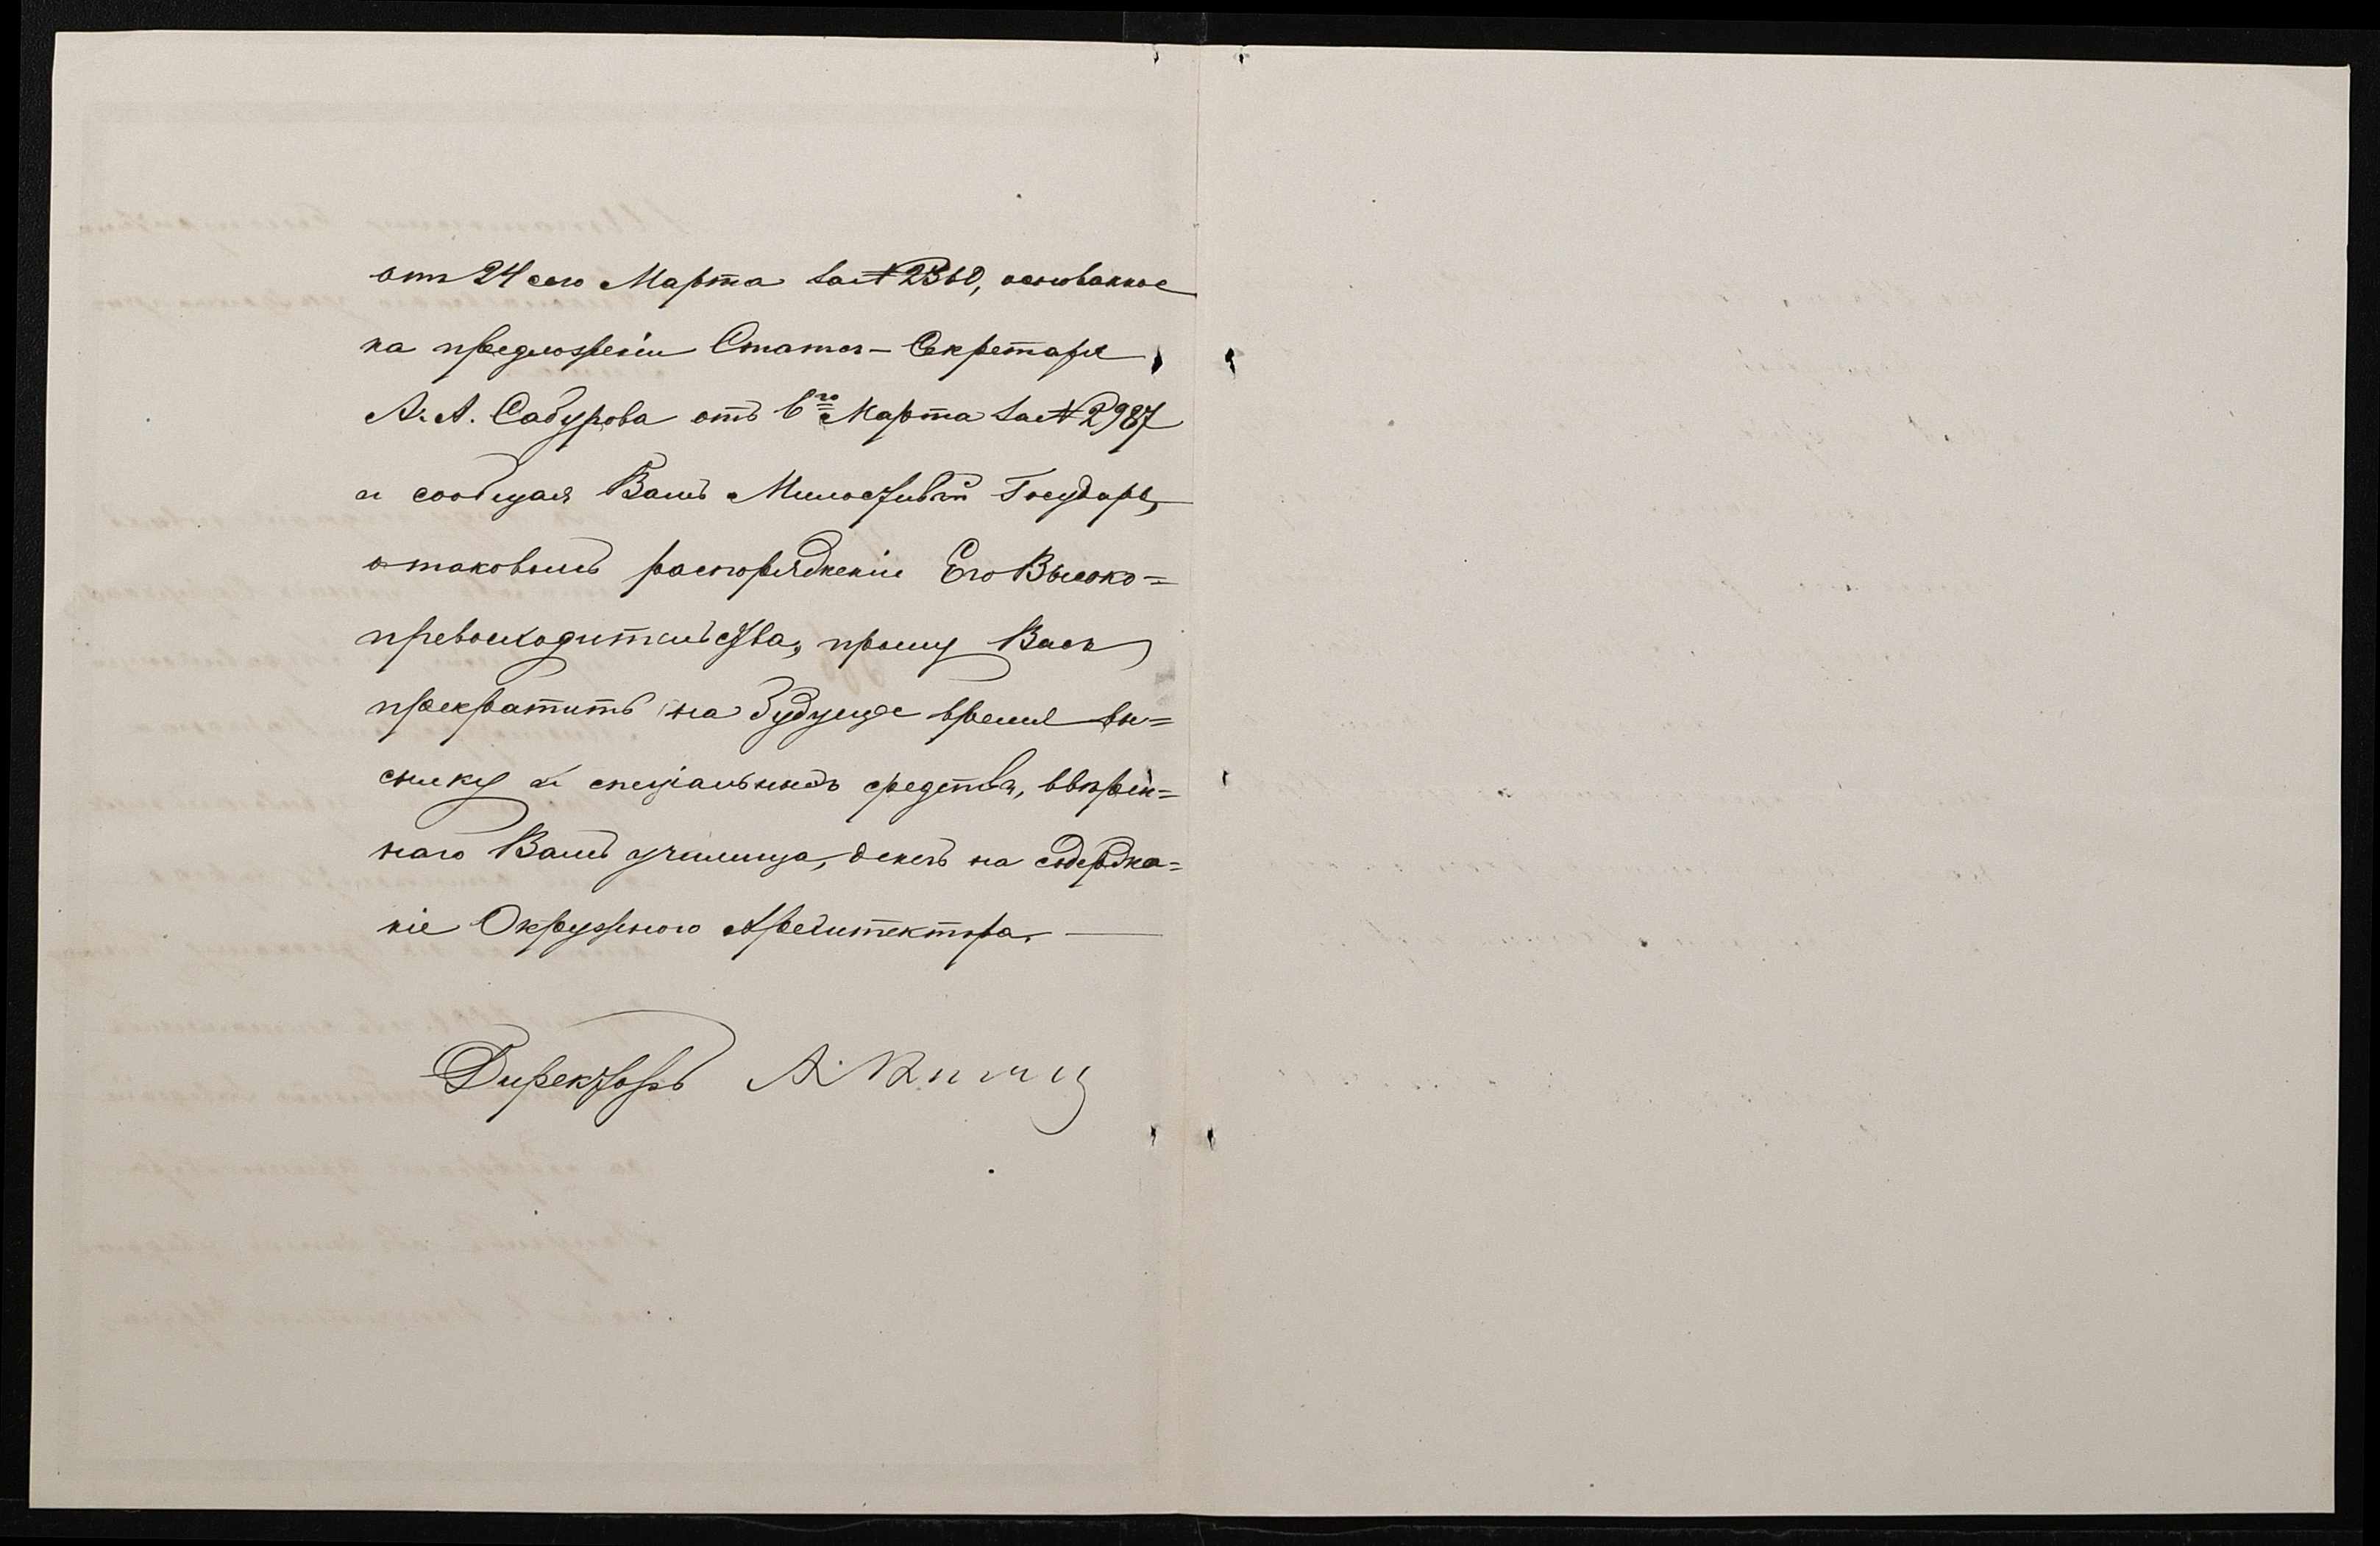 отъ 24 сего Марта за № 2360, основанное
на предложеніи Статсъ-Секретаря
А. А. Сабурова отъ 6го Марта за № 2987
и сообщая Вамъ Милостивый Государь,
о таковомъ распоряженіи Его Высоко=
превосходительства, прошу Васъ
прекратить на будущее время вы=
сылку изъ спеціальныхъ средствъ, ввѣрен=
наго Вамъ училища, денегъ на содержа=
ніе Окружнаго Архитектора.
Директоръ А.